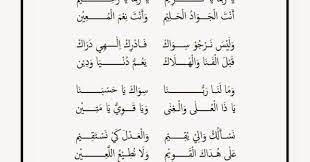 أَنْتَ الْجَوَادُ الْحَلِيْمِ وَأَنْتَ نِعْمَ الْمُعِيْنِ
وَلَيْسَ نَرْجُوْ سِوَاكَ فَادْرِكْ إِلٰهِيْ دَرَاكَ
قَبْلَ الْفَنَا وَالْهَلَاكِ يَعُمُّ دُنْيَا وَدِيْنِ
وَمَا لَنَا رَبَّنَا سِوَاكَ يَا حَسْبَنَا
يَا ذَا الْعُلَى وَالْغِنَى وَيَا قَوِيُّ يَا مَتِيْنُ
نَسْأَلُكَ وَالِيْ يُقِيْمِ وَالْعَدْلَ كَيْ نَسْتَقِيْمِ
عَلَى هُدَاكَ الْقَوِيْمِ وَلَا نُطِيْعُ اللَّعِيْنِ